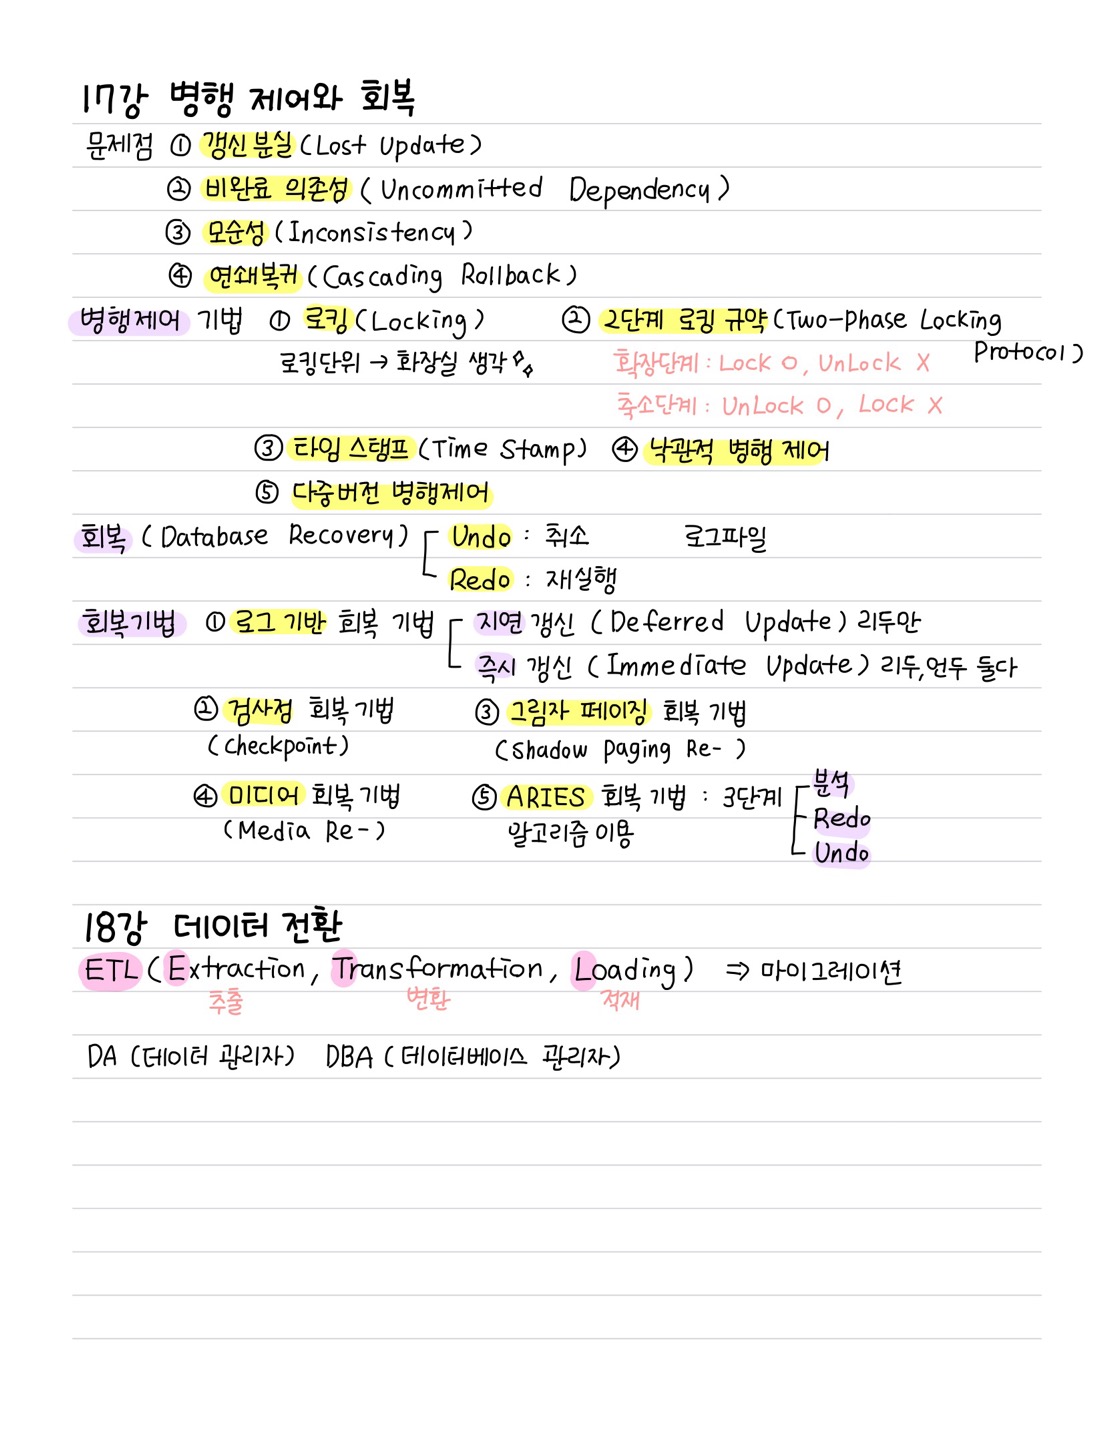 17강 병행 제어와 회복
문제점 ① 갱신분실(Lost Update)
② 비완료 의존성 (Uncommitted Dependency)
③ 모순성(Inconsistency)
④ 연쇄복귀(Cascading Rollback)
병행제어 기법 ① 로킹(Locking) ② 2단계 로킹 규약(Two-Phase Locking Protocol)
로킹단위 → 화장실 생각
확장단계 : Lock O, UnLock X
축소단계 : UnLock O, Lock X
③ 타임 스탬프(Time Stamp) ④ 낙관적 병행 제어
⑤ 다중버전 병행제어
회복 (Database Recovery) Undo : 취소 로그파일
Redo : 재실행
회복기법 ① 로그 기반 회복 기법 지연 갱신 (Deferred Update) 리두만
즉시 갱신 (Immediate Update) 리두,언두 둘다
② 검사점 회복 기법 ③ 그림자 페이징 회복 기법
(Checkpoint) (Shadow Paging Re- )
④ 미디어 회복 기법 ⑤ ARIES 회복 기법 : 3단계 분석
(Media Re-) 알고리즘 이용 Redo
Undo
18강 데이터 전환
ETL (Extraction, Transformation, Loading) ⇒ 마이그레이션
추출 변환 적재
DA (데이터 관리자) DBA (데이터베이스 관리자)